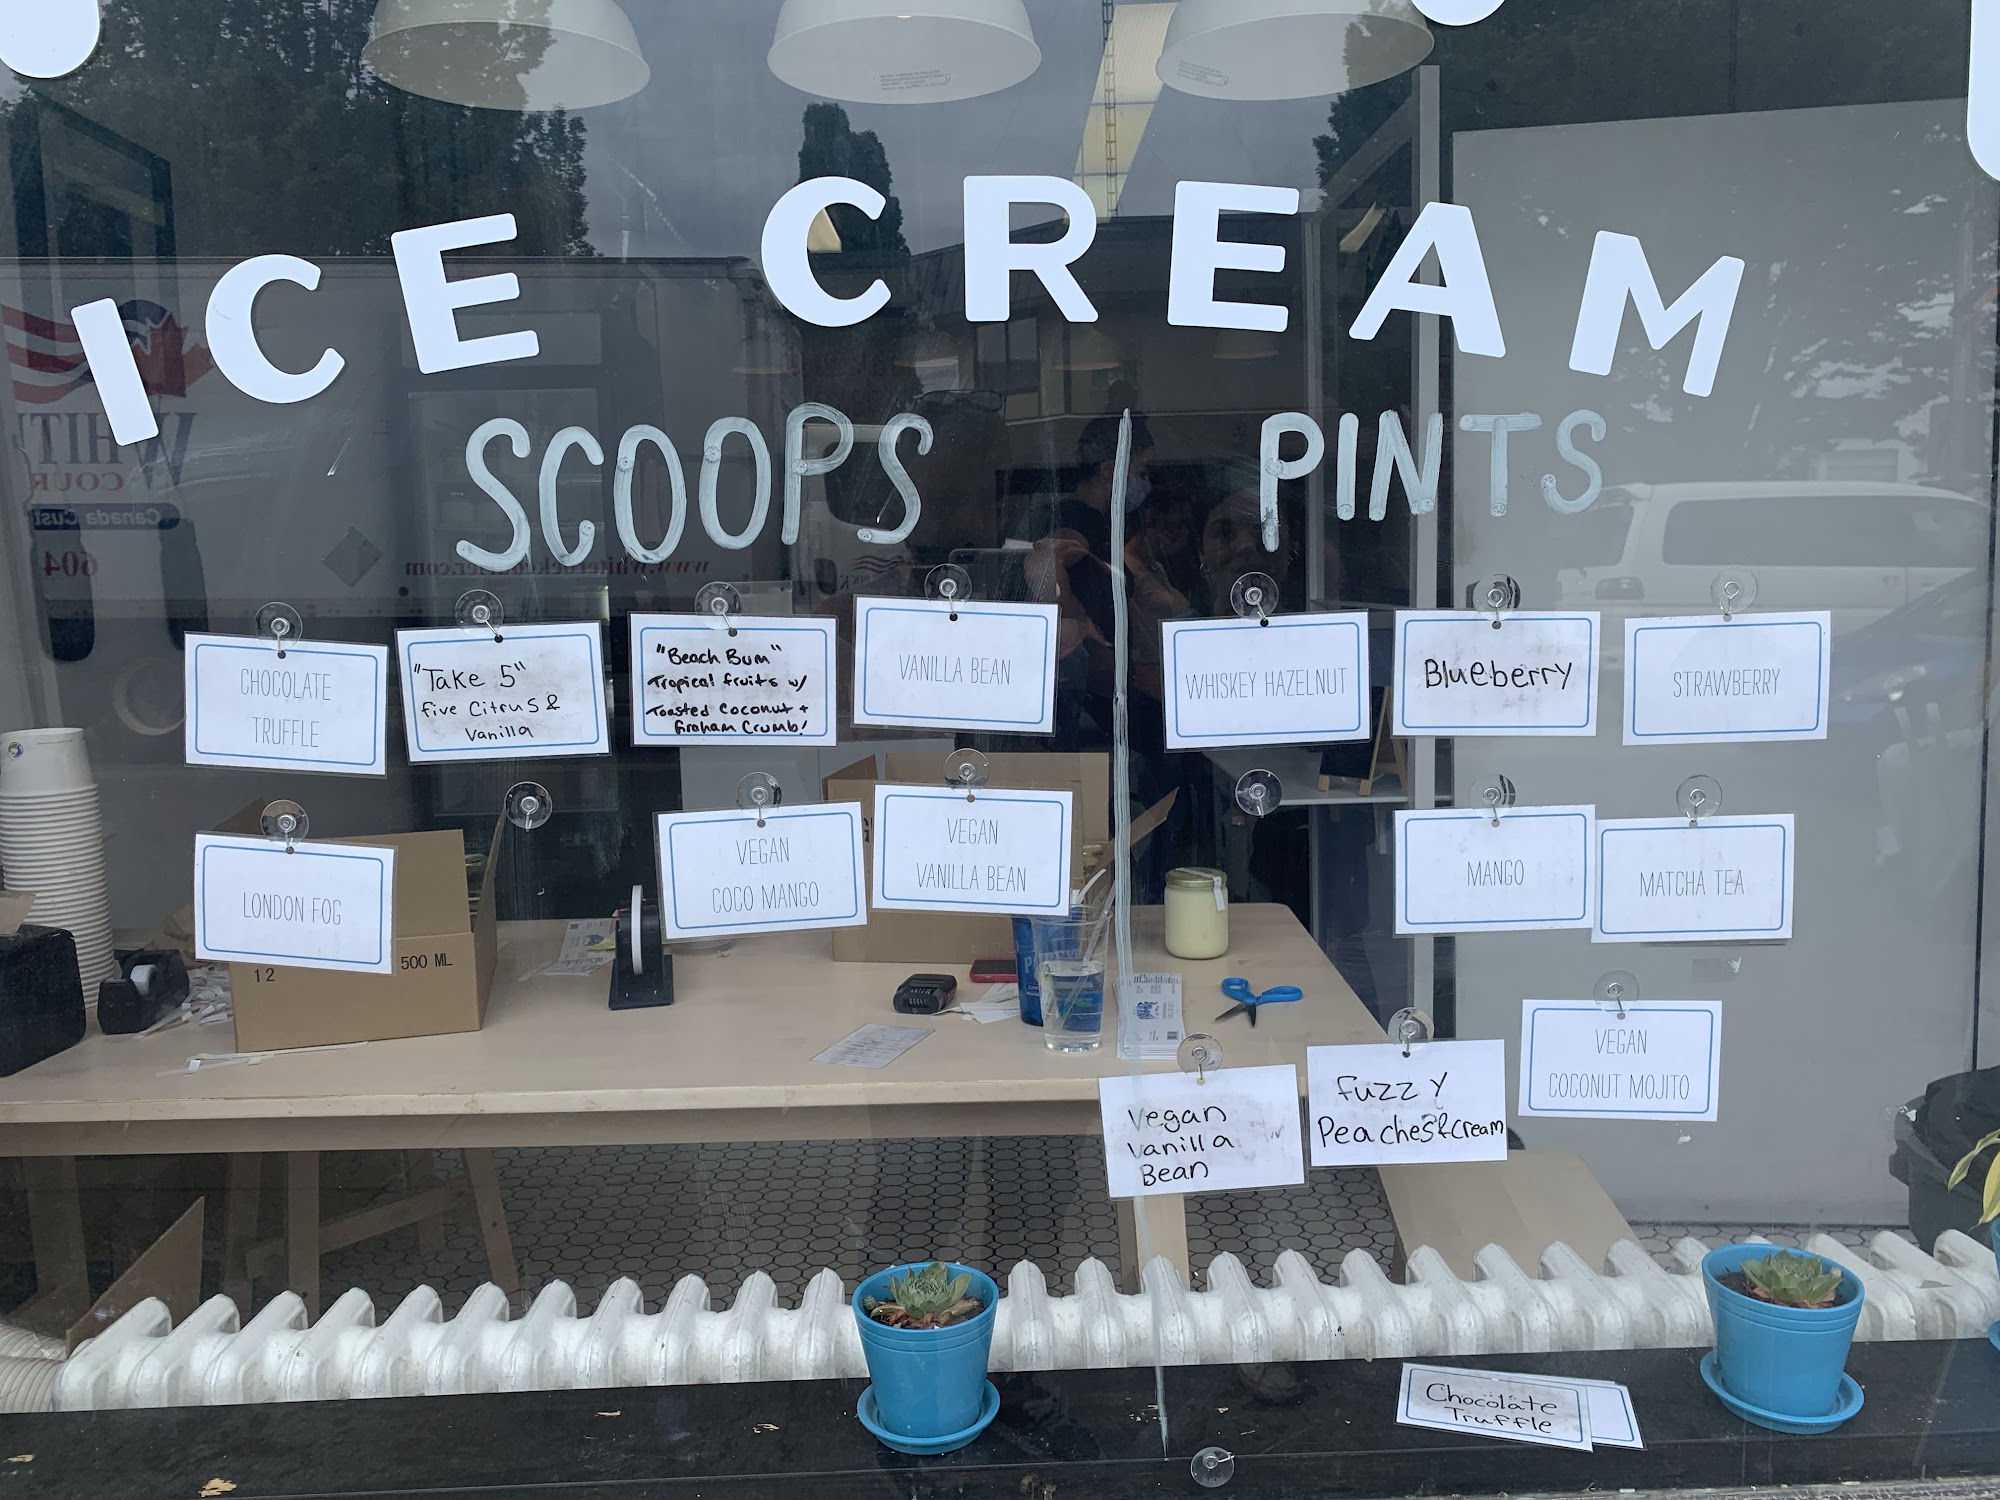 ICE CREAM
SCOOPS | PINTS
CHOCOLATE
TRUFFLE
"Take 5"
five Citrus &
Vanilla
"Beach Bum"
Tropical fruits w/
Toasted Coconut +
Graham Crumb!
VANILLA BEAN
WHISKEY HAZELNUT
Blueberry
STRAWBERRY
LONDON FOG
VEGAN
COCO MANGO
VEGAN
VANILLA BEAN
MANGO
MATCHA TEA
12
500 ML
Vegan
Vanilla
Bean
Fuzzy
Peaches&Cream
VEGAN
COCONUT MOJITO
Chocolate
Truffle
604